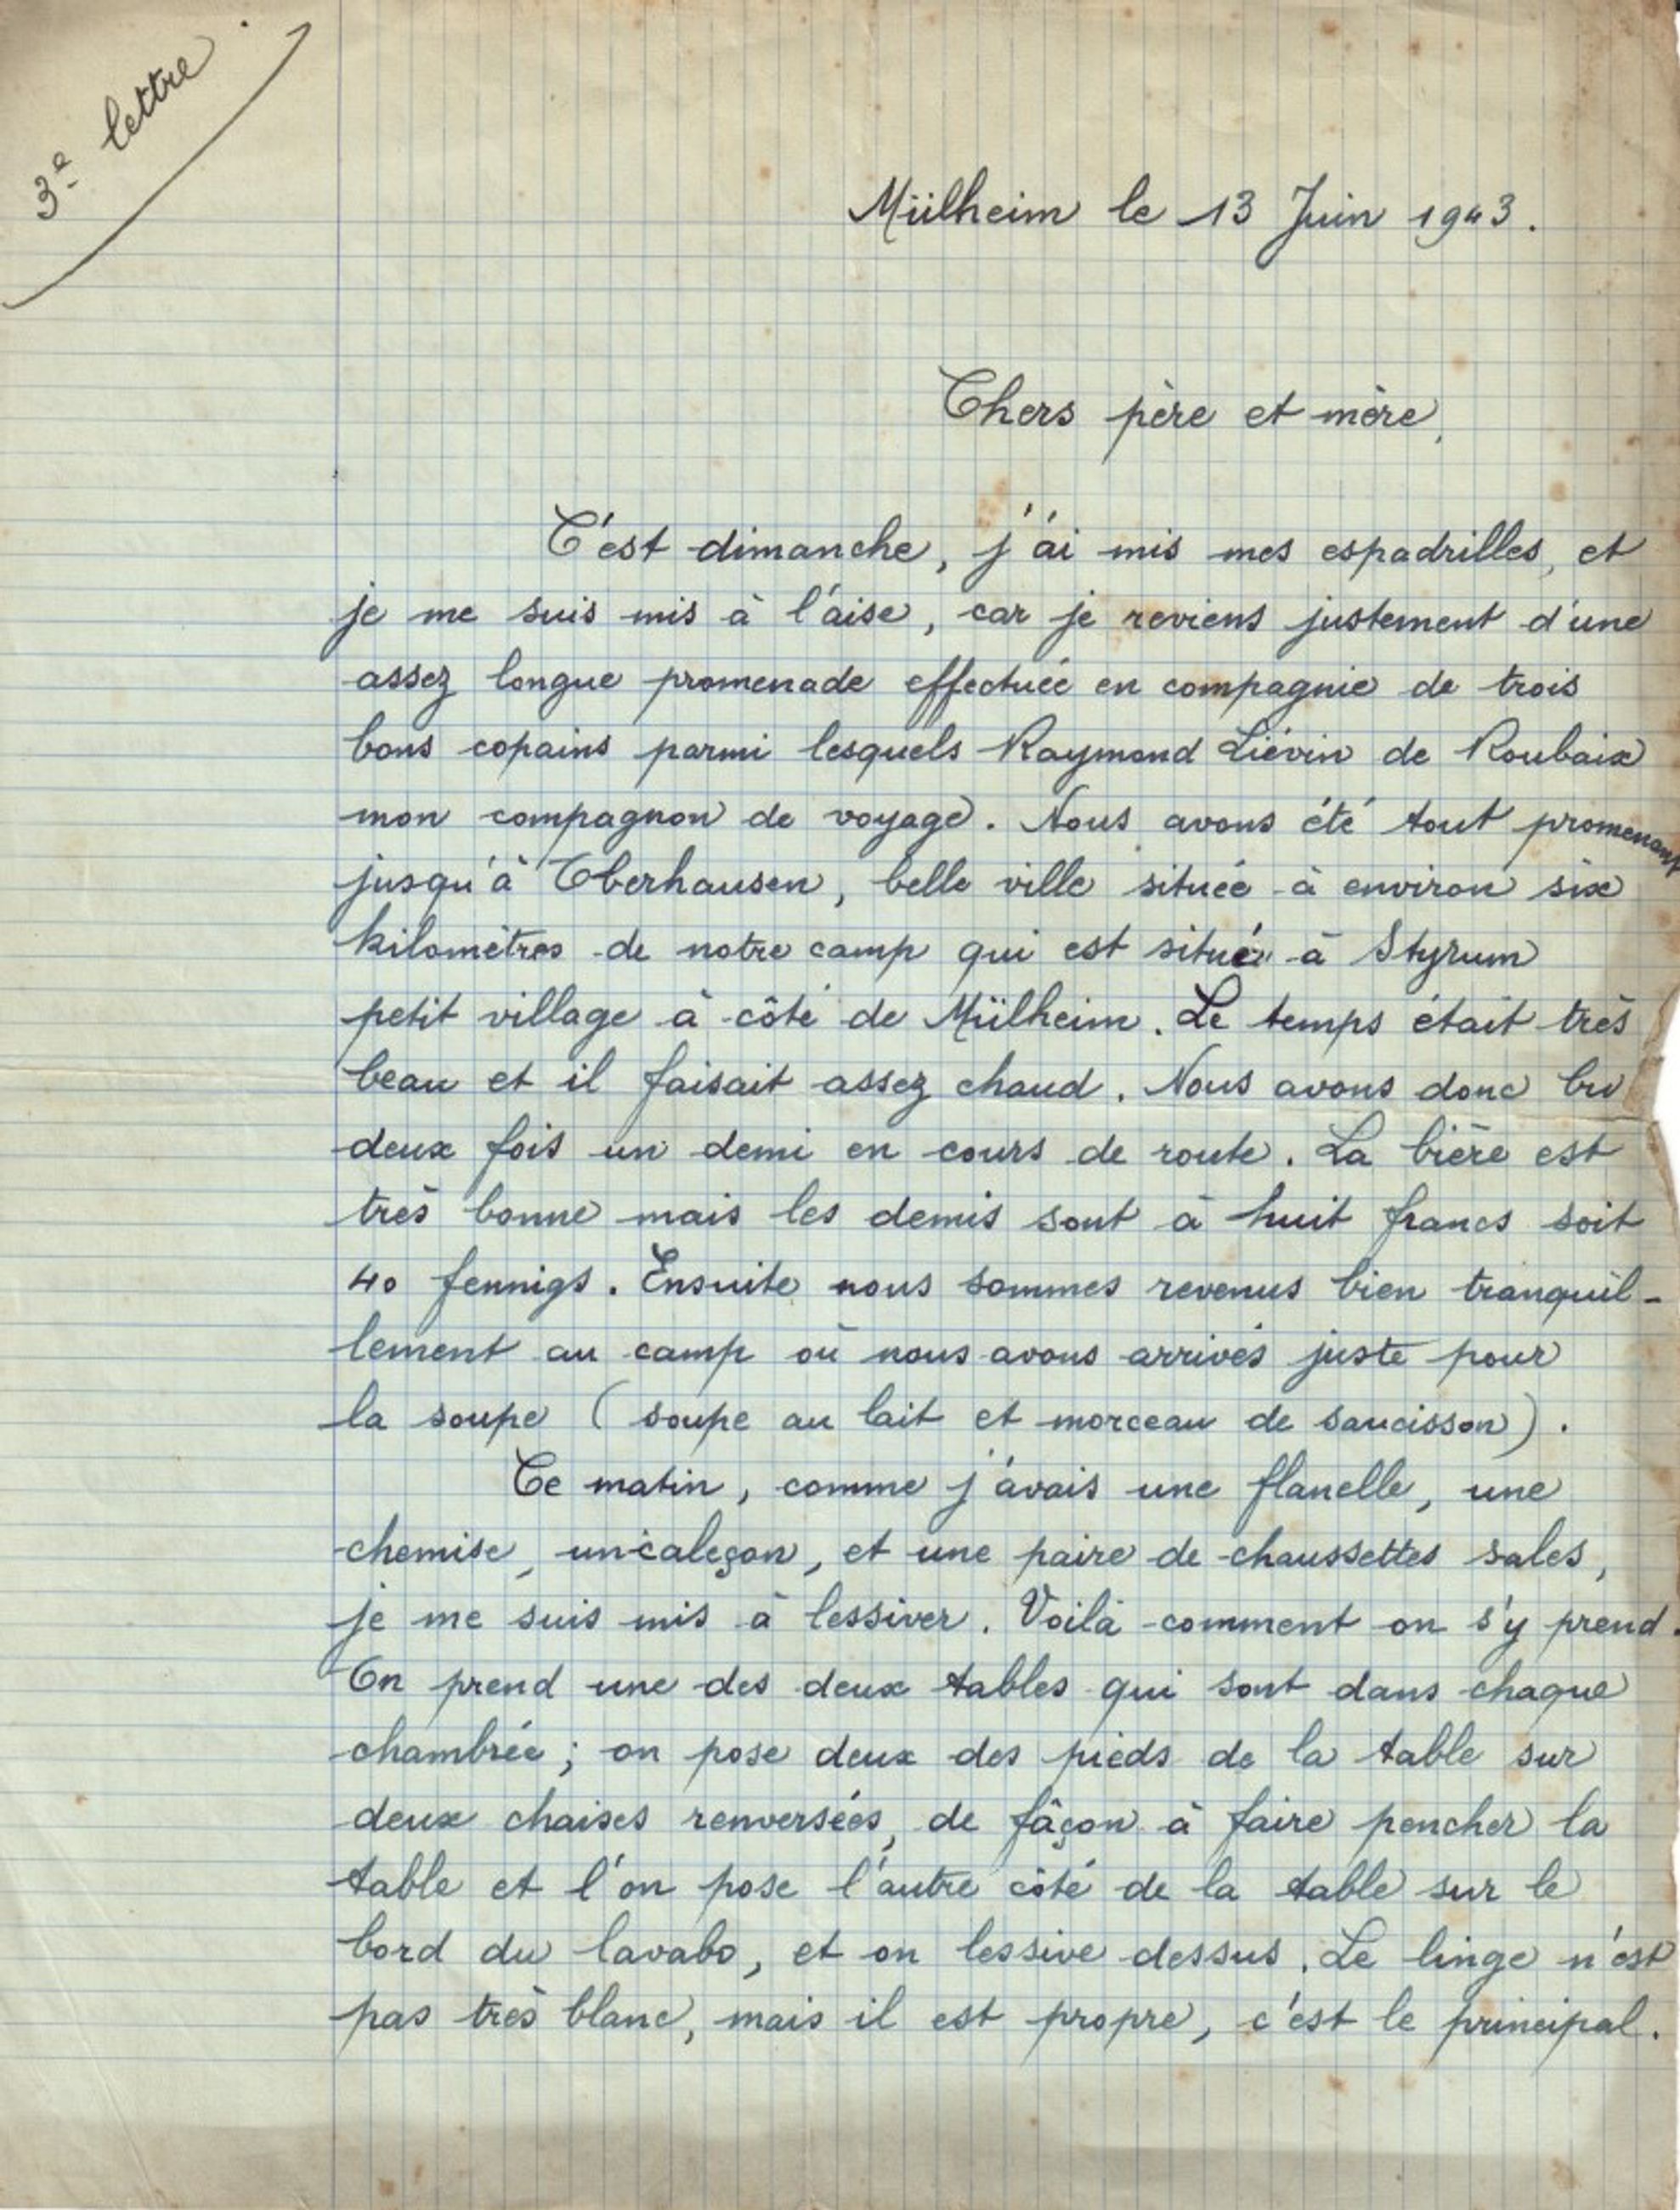 3e lettre
Mülheim le 13 Juin 1943.
Chers père et mère,
C'est dimanche, j'ai mis mes espadrilles, et
je me suis mis à l'aise, car je reviens justement d'une
assez longue promenade effectuée en compagnie de trois
bons copains parmi lesquels Raymond Liévin de Roubaix
mon compagnon de voyage. Nous avons été tout promenant
jusqu'à Oberhausen, belle ville située à environ six
kilomètres de notre camp qui est situé à Styrum
petit village à côté de Mülheim. Le temps était très
beau et il faisait assez chaud. Nous avons donc bu
deux fois un demi en cours de route. La bière est
très bonne mais les demis sont à huit francs soit
40 fennigs. Ensuite nous sommes revenus bien tranquil-
lement au camp où nous avons arrivés juste pour
la soupe (soupe au lait et morceau de saucisson).
Ce matin, comme j'avais une flanelle, une
chemise, un caleçon, et une paire de chaussettes sales,
je me suis mis à lessiver. Voilà comment on s'y prend.
On prend une des deux tables qui sont dans chaque
chambrée; on pose deux des pieds de la table sur
deux chaises renversées, de fâçon à faire pencher la
table et l'on pose l'autre côté de la table sur le
bord du lavabo, et on lessive dessus. Le linge n'est
pas très blanc, mais il est propre, c'est le principal.